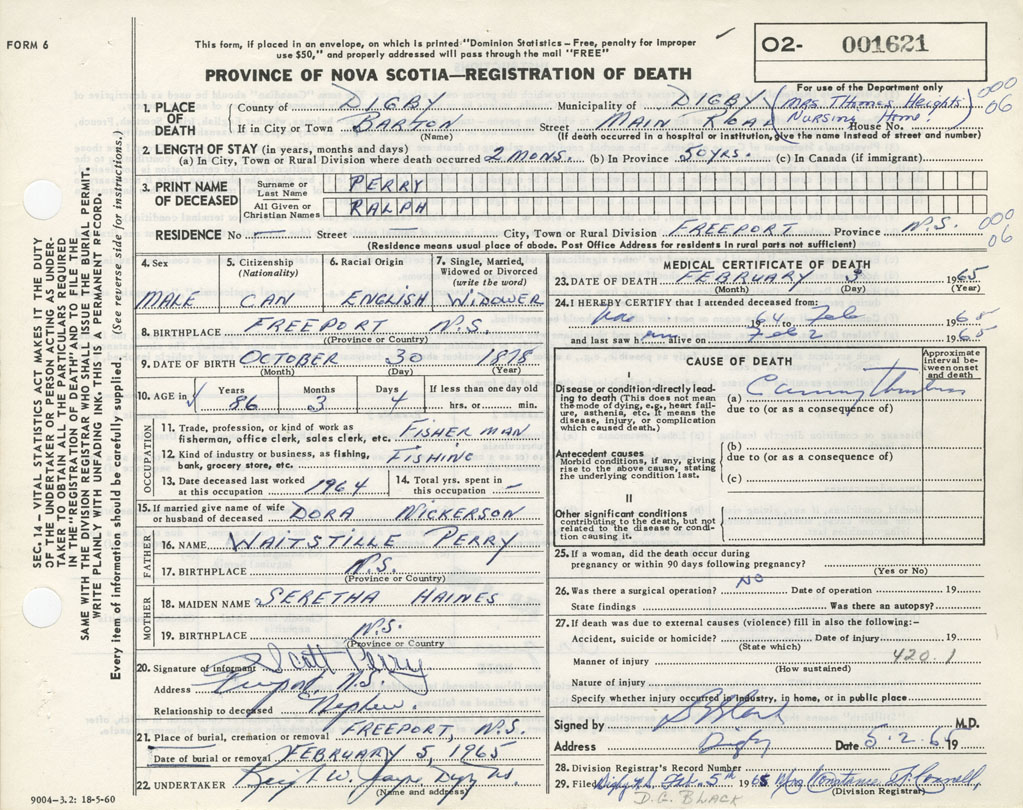 FORM 6
This form, if placed in an envelope, on which is printed "Dominion Statistics – Free, penalty for improper
use $50," and properly addressed will pass through the mail "FREE"
PROVINCE OF NOVA SCOTIA—REGISTRATION OF DEATH
O2- 001621
For use of the Department only
1. PLACE OF DEATH
County of DIGBY Municipality of DIGBY (MRS THOMAS Heights
Nursing Home!
If in City or Town BARTON Street MAIN ROAD House No.
(Name) (If death occurred in a hospital or institution, give the name instead of street and number)
000
06
2. LENGTH OF STAY (in years, months and days)
(a) In City, Town or Rural Division where death occurred 2 MONS. (b) In Province 50 YRS. (c) In Canada (if immigrant)
3. PRINT NAME OF DECEASED
Surname or Last Name PERRY
All Given or Christian Names RALPH
RESIDENCE No — Street — City, Town or Rural Division FREEPORT Province N.S.
(Residence means usual place of abode. Post Office Address for residents in rural parts not sufficient)
000
06
4. Sex MALE
5. Citizenship (Nationality) CAN
6. Racial Origin ENGLISH
7. Single, Married, Widowed or Divorced (write the word) WIDOWER
8. BIRTHPLACE FREEPORT N.S.
(Province or Country)
9. DATE OF BIRTH OCTOBER 30 1878
(Month) (Day) (Year)
10. AGE in Years 86 Months 3 Days 4 If less than one day old hrs. or min.
OCCUPATION
11. Trade, profession, or kind of work as fisherman, office clerk, sales clerk, etc. FISHERMAN
12. Kind of industry or business, as fishing, bank, grocery store, etc. FISHING
13. Date deceased last worked at this occupation 1964
14. Total yrs. spent in this occupation —
15. If married give name of wife or husband of deceased DORA NICKERSON
FATHER
16. NAME WAITSTILLE PERRY
17. BIRTHPLACE N.S.
(Province or Country)
MOTHER
18. MAIDEN NAME SERETHA HAINES
19. BIRTHPLACE N.S.
(Province or Country
20. Signature of informant Scott Perry
Address Freeport, N.S.
Relationship to deceased Nephew.
21. Place of burial, cremation or removal FREEPORT, N.S.
Date of burial or removal FEBRUARY 5, 1965
22. UNDERTAKER W. Digby NS
(Name and address)
MEDICAL CERTIFICATE OF DEATH
23. DATE OF DEATH FEBRUARY 3 1965
(Month) (Day) (Year)
24. I HEREBY CERTIFY that I attended deceased from:
1964 to Feb 1965
and last saw him alive on Feb 2 1965
CAUSE OF DEATH
Approximate interval between onset and death
I
Disease or condition directly leading to death (This does not mean the mode of dying, e.g., heart failure, asthenia, etc. It means the disease, injury, or complication which caused death.)
(a) Coronary Thrombosis
due to (or as a consequence of)
Antecedent causes
Morbid conditions, if any, giving rise to the above cause, stating the underlying condition last.
(b)
due to (or as a consequence of)
(c)
II
Other significant conditions
contributing to the death, but not related to the disease or condition causing it.
25. If a woman, did the death occur during
pregnancy or within 90 days following pregnancy?
(Yes or No)
26. Was there a surgical operation? NO Date of operation 19
State findings Was there an autopsy?
27. If death was due to external causes (violence) fill in also the following:–
Accident, suicide or homicide? Date of injury 19
(State which)
Manner of injury 420.1
(How sustained)
Nature of injury
Specify whether injury occurred in industry, in home, or in public place
Signed by Black M.D.
Address Digby Date 5-2-65 19
28. Division Registrar's Record Number
29. Filed Digby NS Feb. 5th 1965 Mrs Constance H. Connell
(Division Registrar)
D.G. BLACK
SEC. 14 – VITAL STATISTICS ACT MAKES IT THE DUTY
OF THE UNDERTAKER OR PERSON ACTING AS UNDER-
TAKER TO OBTAIN ALL THE PARTICULARS REQUIRED
IN THE "REGISTRATION OF DEATH" AND TO FILE THE
SAME WITH THE DIVISION REGISTRAR WHO SHALL ISSUE THE BURIAL PERMIT.
WRITE PLAINLY WITH UNFADING INK. THIS IS A PERMANENT RECORD.
Every item of information should be carefully supplied. (See reverse side for instructions.)
9004-3.2: 18-5-60